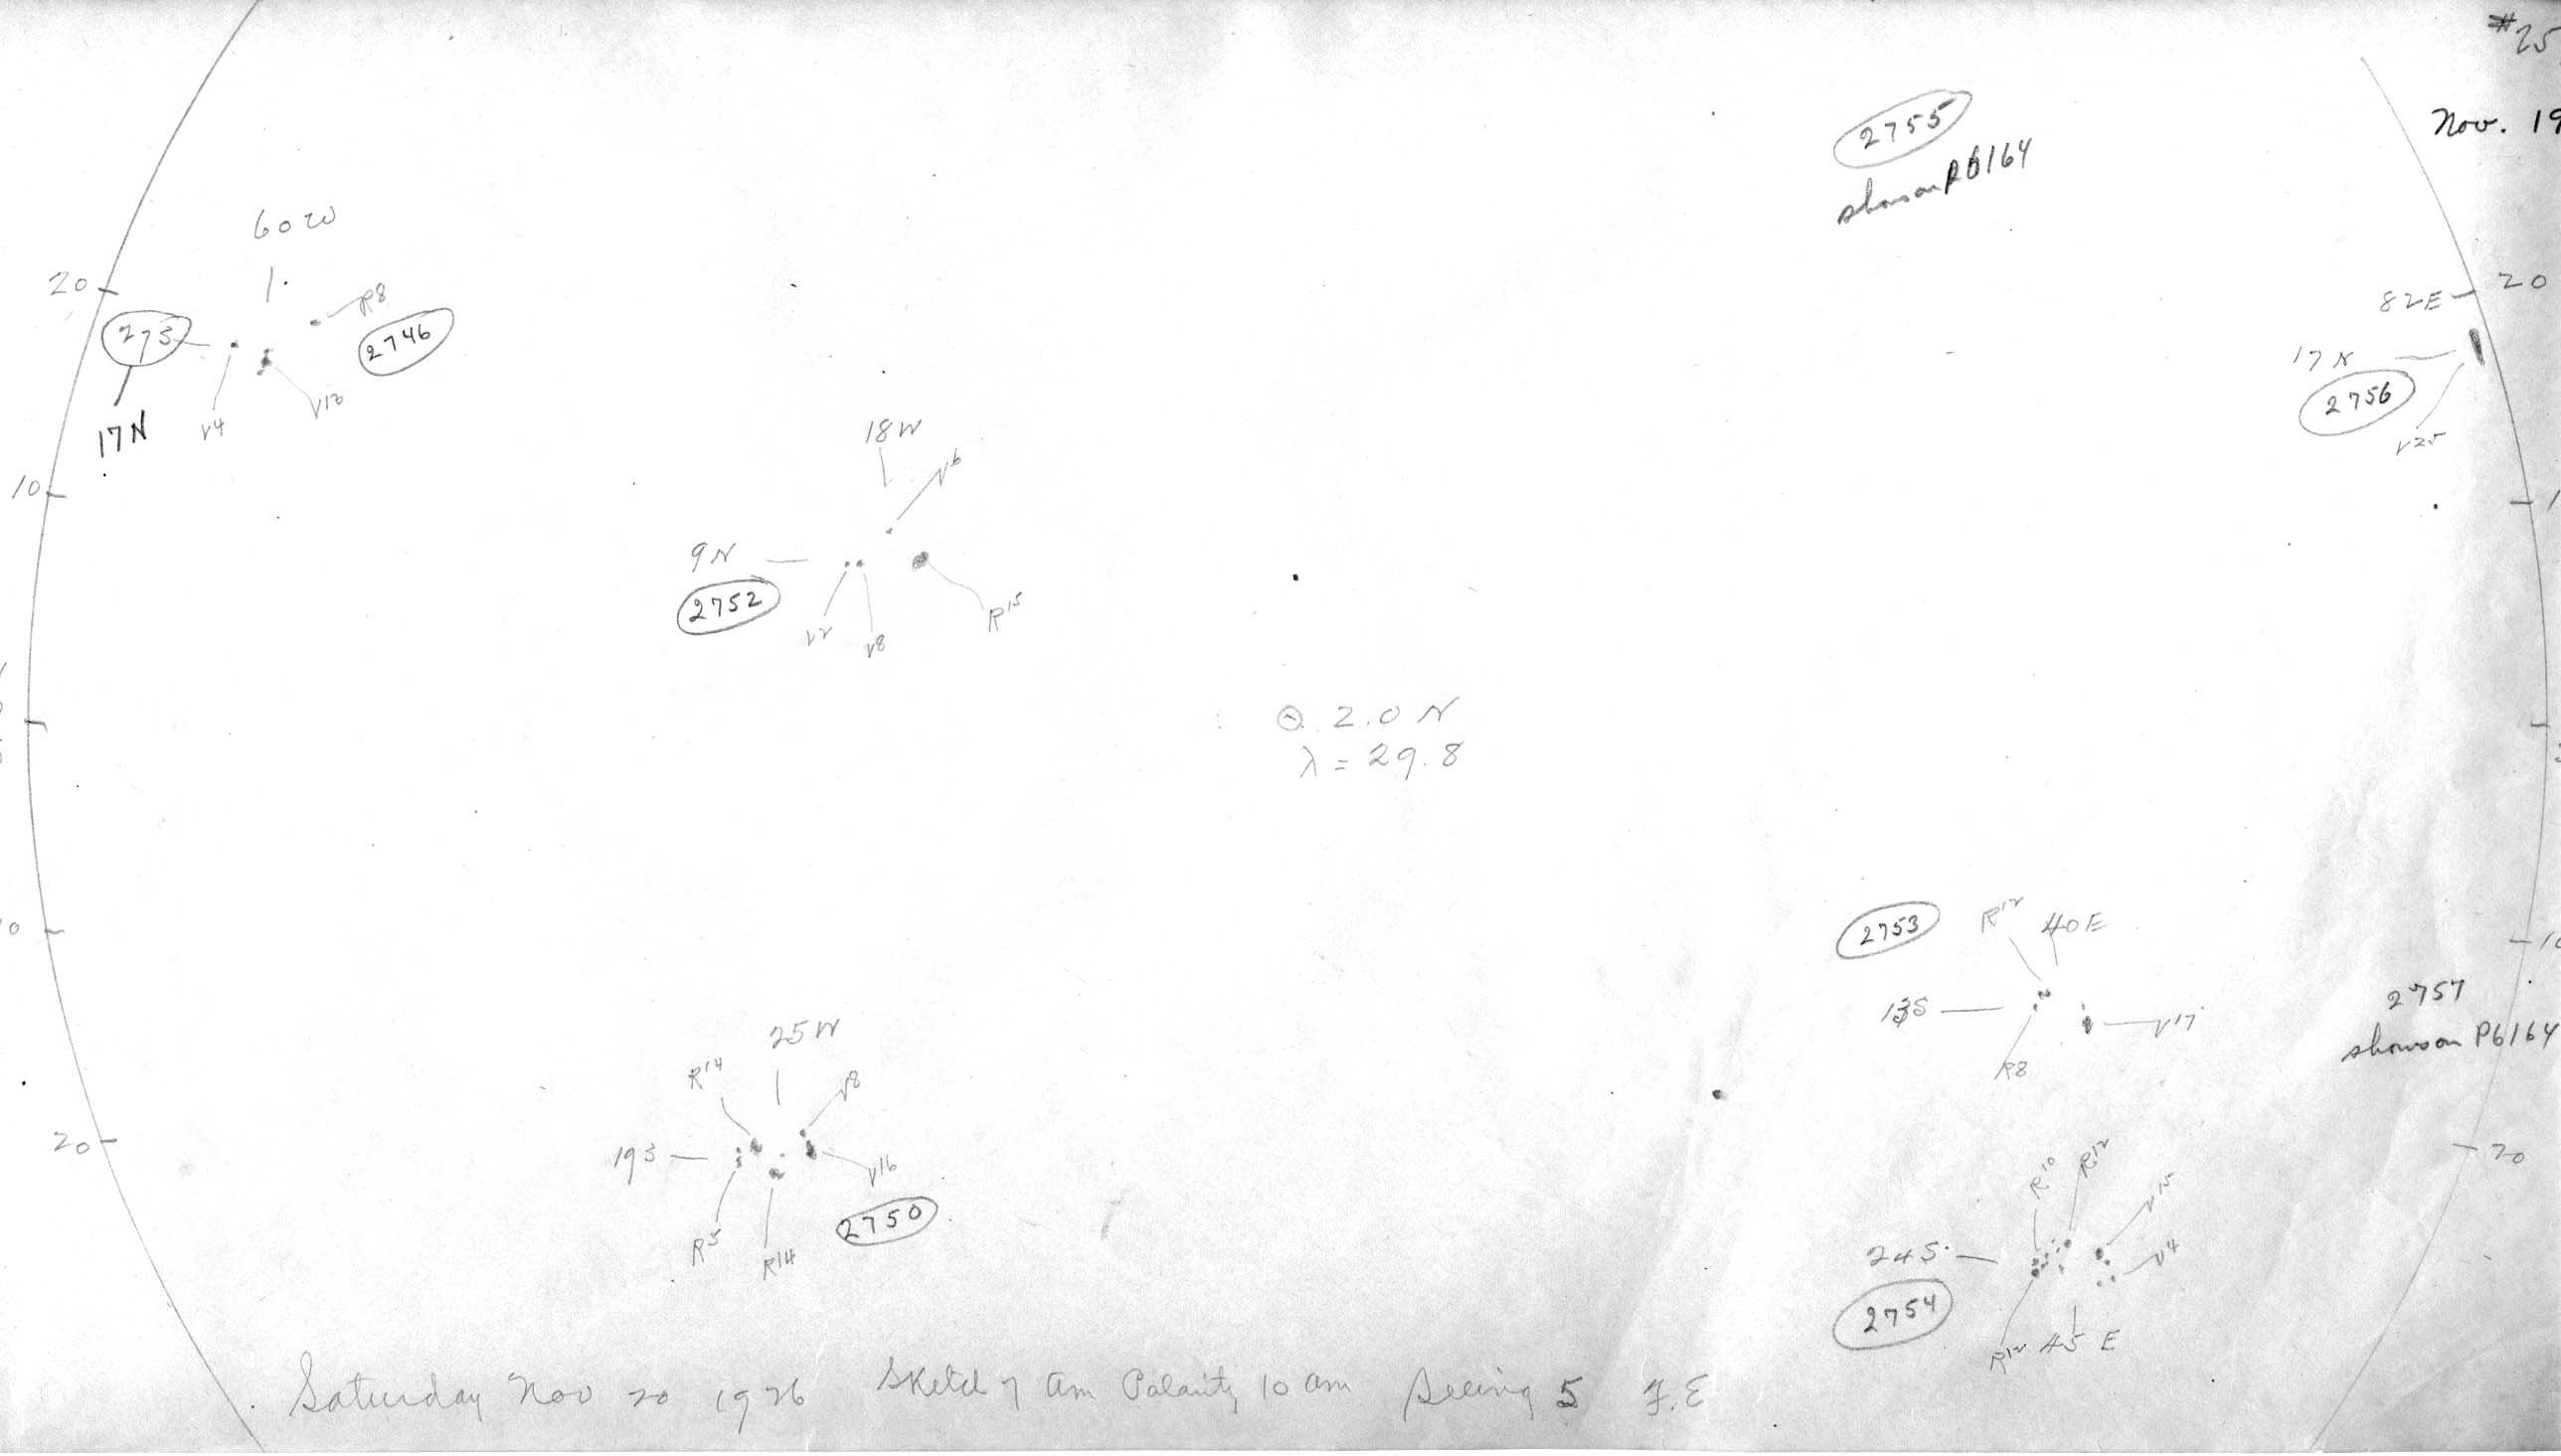 #25
Nov. 19
2755
shows on P6164
60W
20
R8
273
2746
17N
V4
20
82E
17N
2756
V25
10
18W
V6
9N
2752
V2
V8
R15
⊙ 2.0 N
λ = 29.8
2753
R12
40E
10
13S
V17
R8
2757
shows on P6164
25W
R14
V8
20
19S
V16
2750
R5
R14
20
R10
R12
V15
24S
V4
2754
R12
45 E
Saturday Nov 20 1926 Sketch 7 am Polarity 10 am Seeing 5 F.E